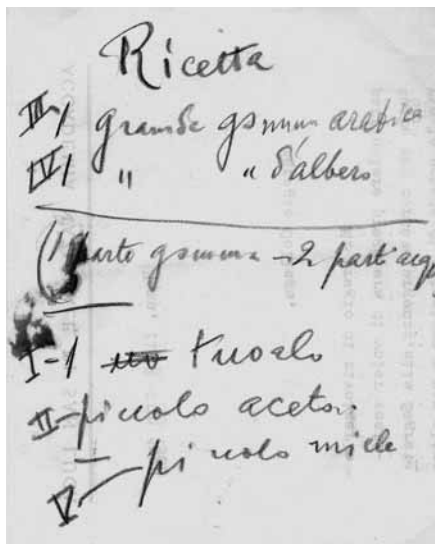 Ricetta
III-1 grande gomma arabica
IV-1 " " d'albero
(1 parte gomma - 2 parti
I-1 tuorlo
II- piccolo aceto
V - piccolo miele